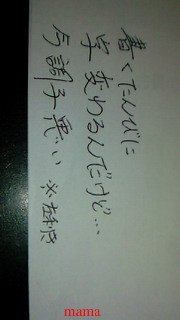 書くたんびに
字変わるんだけど…
今調子悪い ※左利き
mama